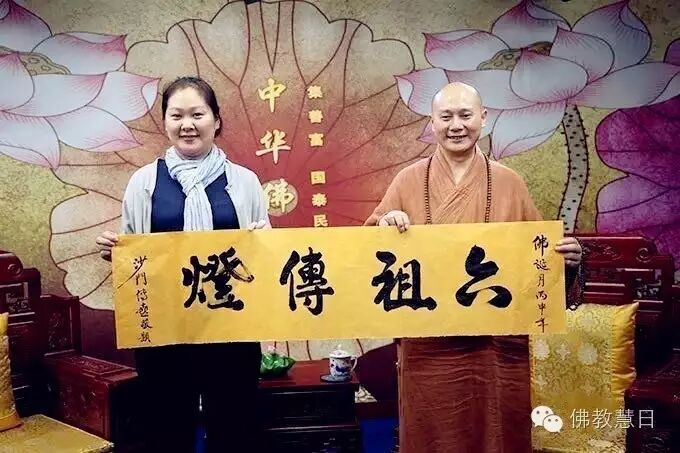 中华佛
集善富 国泰民
佛诞月丙申年
六祖傳燈
沙門傳敬题
佛教慧日